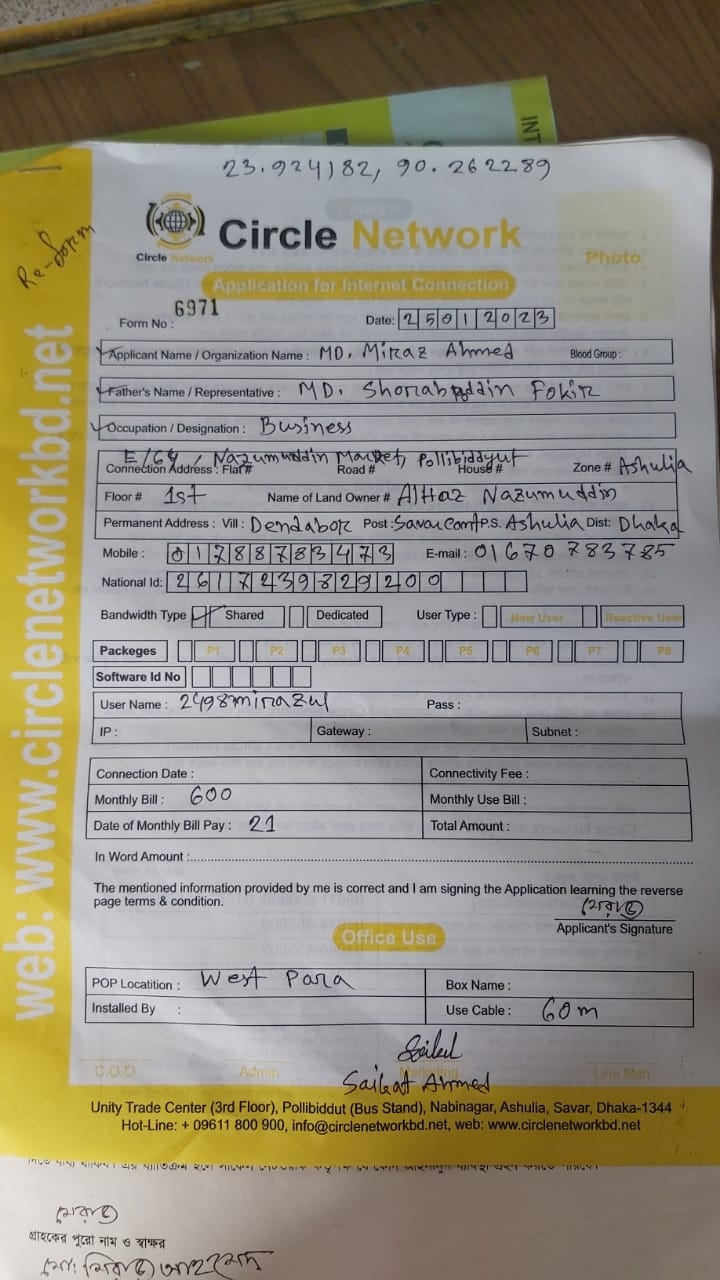 INT
23.924182, 90.262289
Circle Network
Circle Network
Photo
Application for Internet Connection
Form No : 6971
Date: 25012023
Applicant Name / Organization Name : MD. Miraz Ahmed Blood Group :
Father's Name / Representative : MD. Shorabuddin Fokir
Occupation / Designation : Business
E/64, Nazumuddin Market, Pollibiddyut
Connection Address : Flat # Road # House # Zone # Ashulia
Floor # 1st Name of Land Owner # Alhaz Nazumuddin
Permanent Address : Vill : Dendabor Post : Savar cant P.S. Ashulia Dist: Dhaka
Mobile : 01788783473 E-mail : 01670 783785
National Id: 2617239829200
Bandwidth Type Shared Dedicated User Type : New User Reactive User
Packeges P1 P2 P3 P4 P5 P6 P7 P8
Software Id No
User Name : 2498mirazul Pass :
IP : Gateway : Subnet :
Connection Date : Connectivity Fee :
Monthly Bill : 600 Monthly Use Bill :
Date of Monthly Bill Pay : 21 Total Amount :
In Word Amount :
The mentioned information provided by me is correct and I am signing the Application learning the reverse
page terms & condition.
মেরাজ
Applicant's Signature
Office Use
POP Locatition : West Para Box Name :
Installed By : Use Cable : 60m
C.O.D Admin Marketing Line Man
Saikat Ahmed
Unity Trade Center (3rd Floor), Pollibiddut (Bus Stand), Nabinagar, Ashulia, Savar, Dhaka-1344
Hot-Line: + 09611 800 900, info@circlenetworkbd.net, web: www.circlenetworkbd.net
web: www.circlenetworkbd.net
মেরাজ
গ্রাহকের পুরো নাম ও স্বাক্ষর
মো: মিরাজ আহমেদ